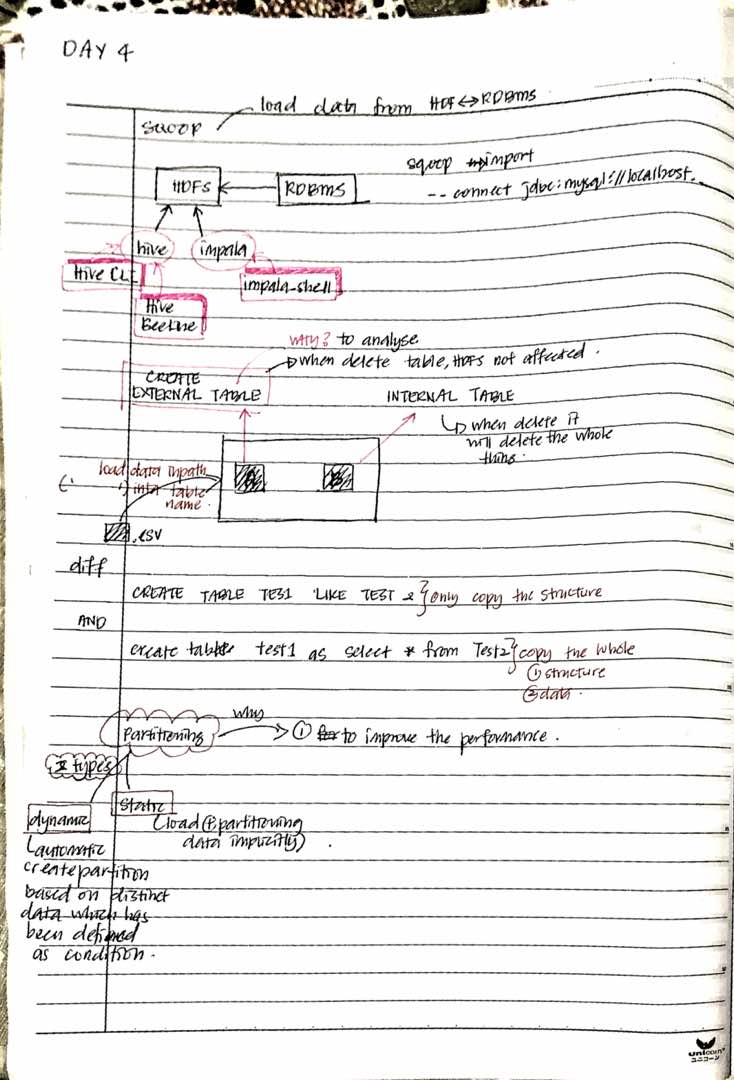 DAY 4
load data from HDF ↔ RDBMS
sqoop
sqoop import
-- connect jdbc:mysql://localhost.
HDFS ← RDBMS
hive impala
Hive CLI
impala-shell
Hive
Beeline
WHY? to analyse
when delete table, HDFS not affected.
CREATE
EXTERNAL TABLE
INTERNAL TABLE
when delete it
will delete the whole
thing.
load data inpath
(' ') into table
name.
.csv
diff
CREATE TABLE TEST1 LIKE TEST 2 } only copy the structure
AND
create table test1 as select * from Test2 } copy the whole
① structure
② data.
Partitioning why → ① to improve the performance.
2 types
dynamic
static
(load & partitioning
data implicitly) .
(automatic
create partition
based on distinct
data which has
been defined
as condition.
unicorn
ユニコーン